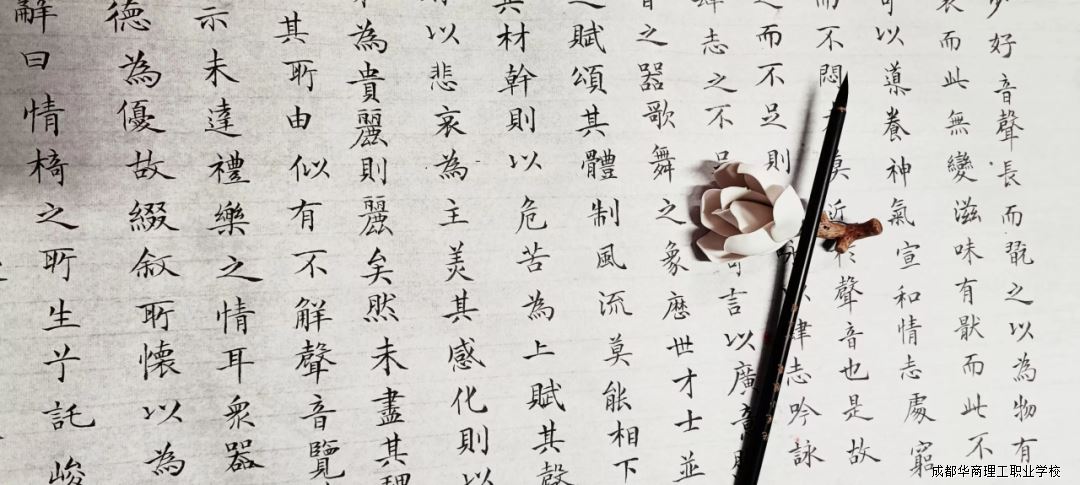 少好音聲長而翫之以為物有
衰而此無變滋味有猒而此不
可以導養神氣宣和情志處窮
而不悶莫近於聲音也是故
之而不足則志吟詠
肆志之不言以廣意
音之器歌舞之象歷世才士並
之賦頌其體制風流莫能相下
其材幹則以危苦為上賦其聲
以悲哀為主美其感化則以
為貴麗則麗矣然未盡其理
其所由似有不解聲音覽
示未達禮樂之情耳衆器
德為優故綴叙所懷以為
辭曰情椅之所生兮託峻
成都华商理工职业学校